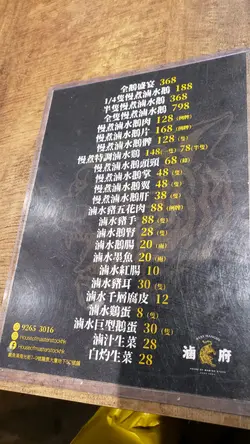 全鵝盛宴 368
1/4隻慢煮滷水鵝 188
半隻慢煮滷水鵝 368
全隻慢煮滷水鵝 798
慢煮滷水鵝肉 128 (例牌)
慢煮滷水鵝片 168 (例牌)
慢煮滷水鵝髀 128 (隻)
慢煮特調滷水鵝 148(隻) 78(半隻)
慢煮滷水鵝頭頸 68
慢煮滷水鵝掌 48 (隻)
慢煮滷水鵝翼 48 (隻)
慢煮滷水鵝肝 38
滷水豬五花肉 88 (例牌)
滷水豬手 88 (隻)
滷水鵝腎 28 (隻)
滷水鵝腸 20
滷水墨魚 20
滷水紅腸 10
滷水豬耳 30 (隻)
滷水千層腐皮 12
滷水鵝蛋 8 (隻)
滷水巨型鵝蛋 30 (隻)
滷汁生菜 28
白灼生菜 28
9265 3016
houseofmasterstockhk
houseofmasterstockhk
滷府